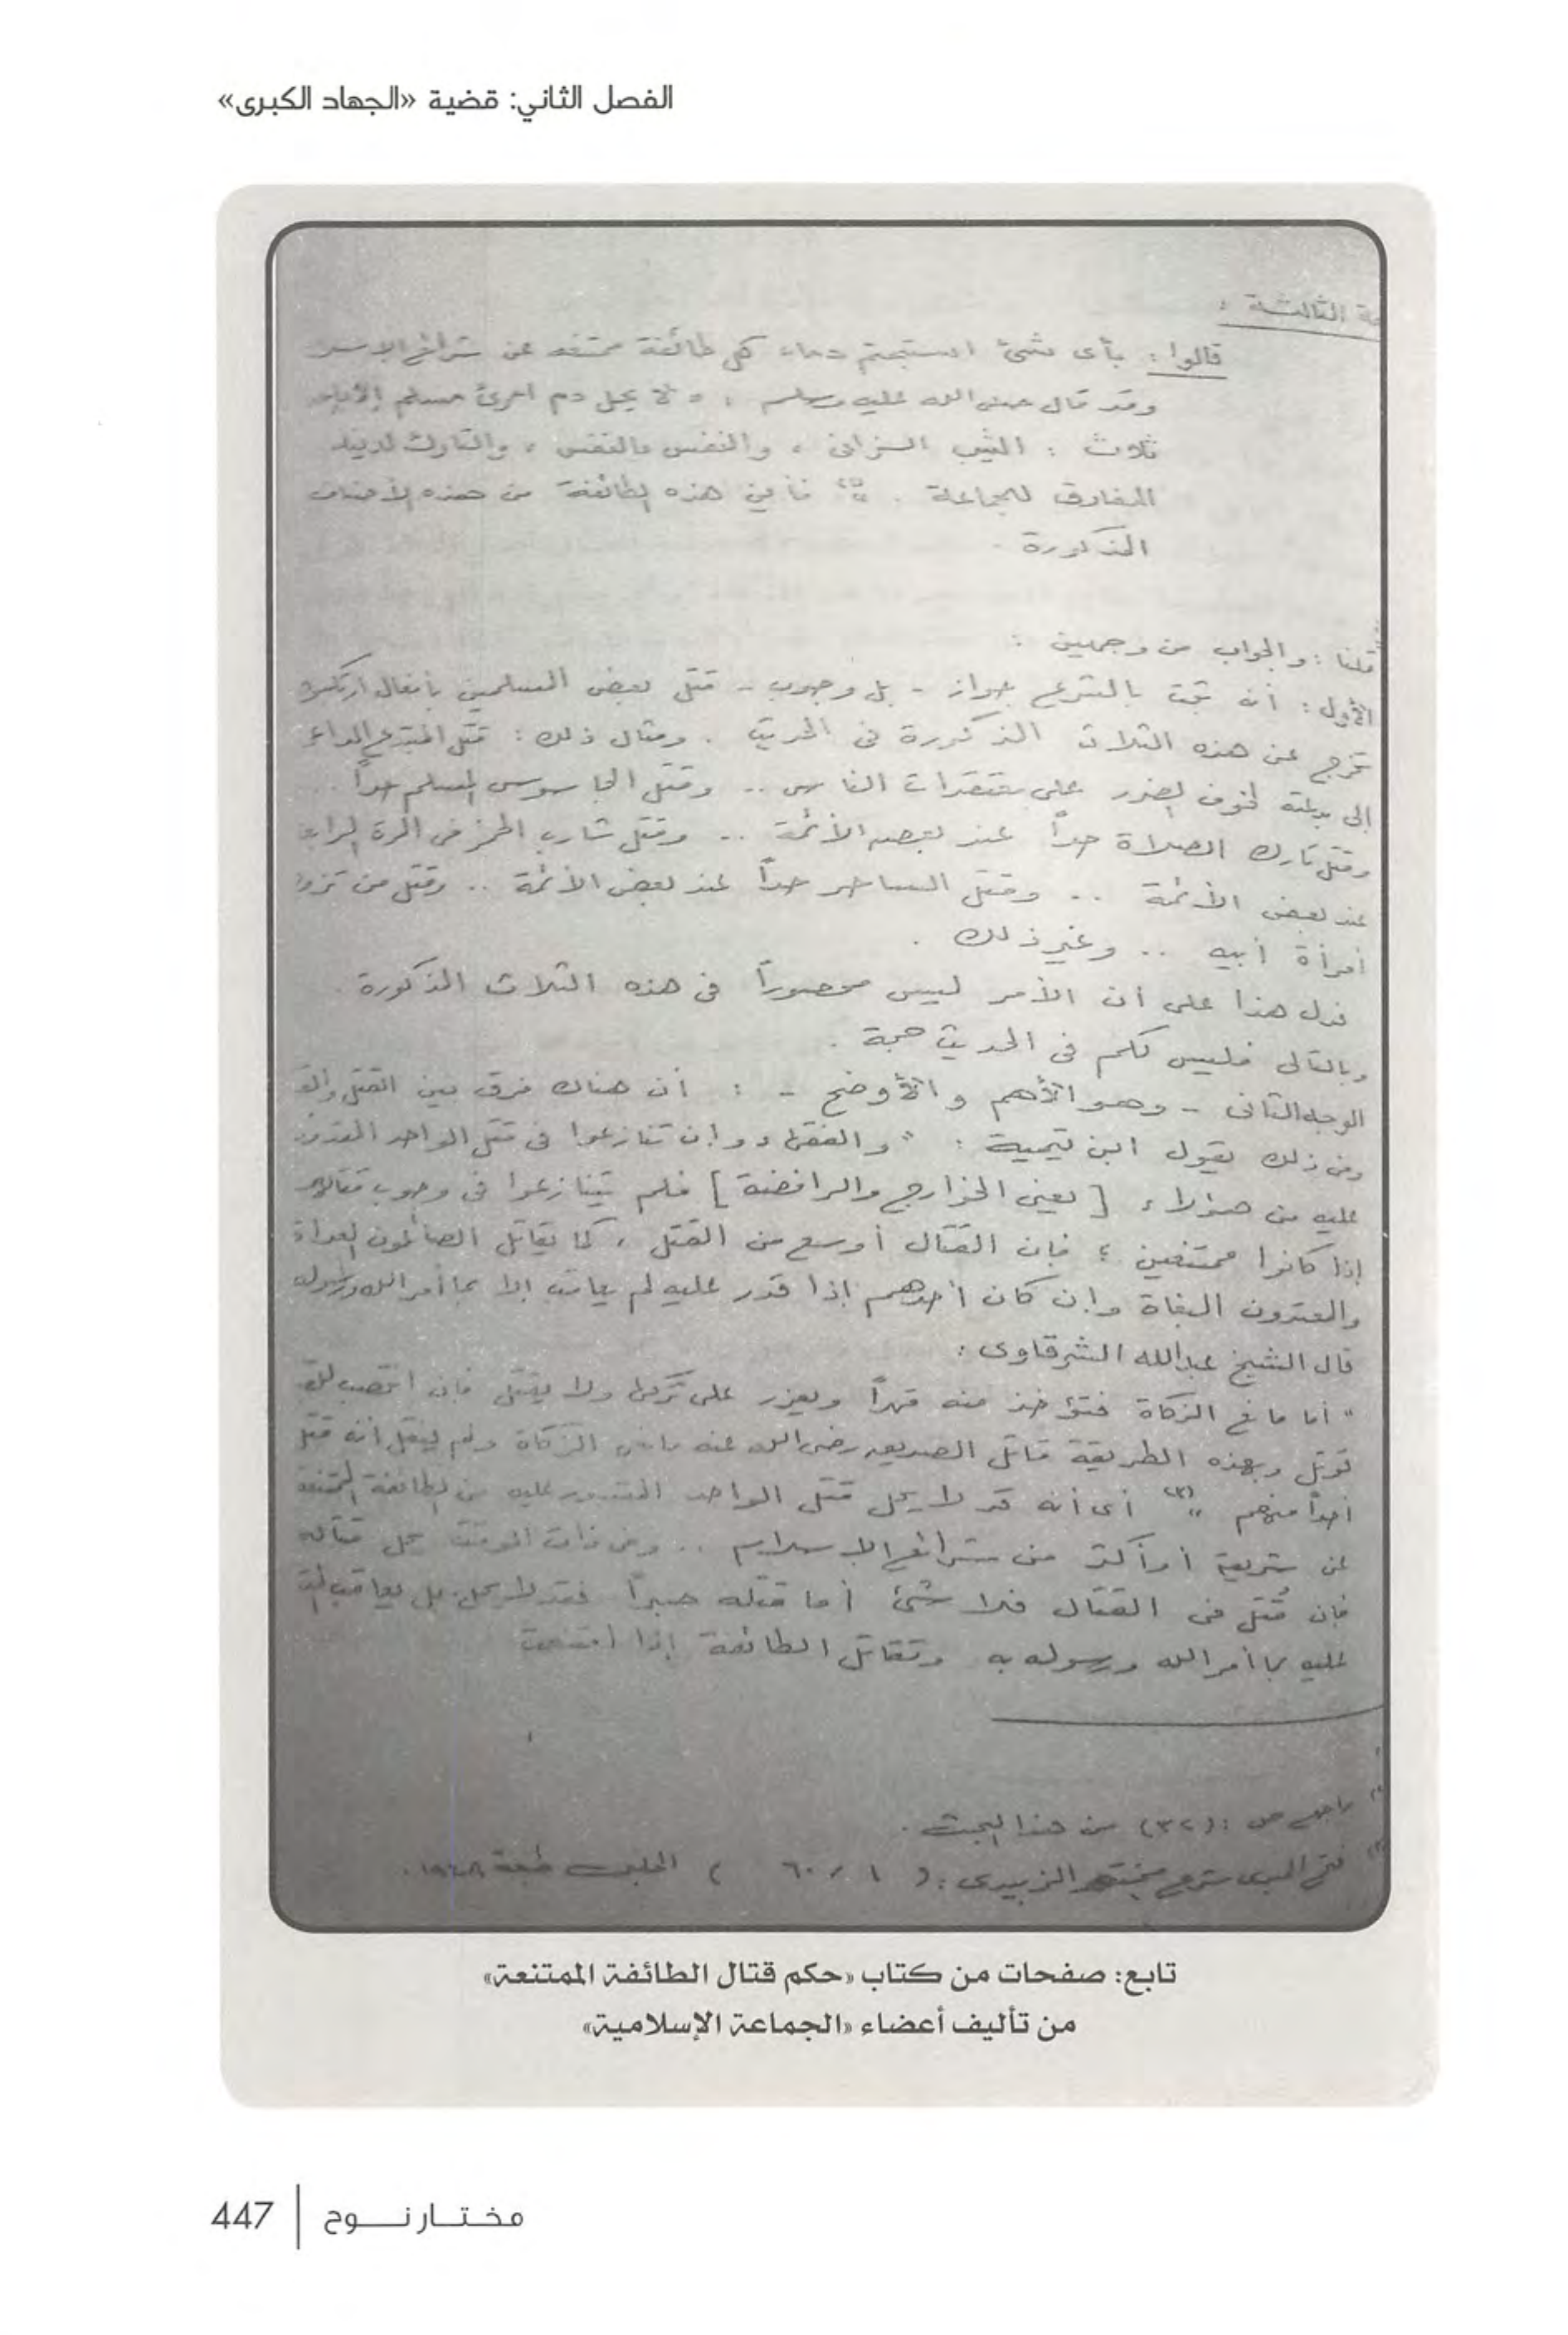 الفصل الثاني: قضية «الجهاد الكبرى»
الثالثة :
قالوا : بأى شئ استبحتم دماء كل طائفة ممتنعة عن شرائع الإسلا
وقد قال صلى الله عليه وسلم : " لا يحل دم امرئ مسلم إلا بإحد
ثلاث : الثيب الزانى ، والنفس بالنفس ، والتارك لدينه
المفارق للجماعة . " فأين هذه الطائفة من هذه الأصناف
المذكورة .
قلنا : والجواب من وجهين :
الأول : أنه ثبت بالشرع جواز - بل وجوب - قتل بعض المسلمين بأفعال ارتكبوها
تخرج عن هذه الثلاث المذكورة فى الحديث . ومثال ذلك : قتل المبتدع الداعى
إلى بدعته لخوف الضرر على معتقدات الناس .. وقتل الجاسوس المسلم حداً ..
وقتل تارك الصلاة حداً عند بعض الأئمة .. وقتل شارب الخمر فى المرة الرابعة
عند بعض الأئمة .. وقتل الساحر حداً عند بعض الأئمة .. وقتل من تزو
امرأة أبيه .. وغير ذلك .
فدل هذا على أن الأمر ليس محصوراً فى هذه الثلاث المذكورة .
وبالتالى فليس لكم فى الحديث حجة .
الوجه الثانى - وهو الأهم والأوضح - : أن هناك فرق بين القتل والق
وفى ذلك يقول ابن تيمية : " والفقهاء وإن تنازعوا فى قتل الواحد المقدور
عليه من هؤلاء [ يعنى الخوارج والرافضة ] فلم يتنازعوا فى وجوب قتالهم
إذا كانوا ممتنعين ؛ فإن القتال أوسع من القتل ، كما يقاتل الصائلون العداة
والمعتدون البغاة وإن كان أحدهم إذا قدر عليه لم يعاقب إلا بما أمر الله ورسوله
قال الشيخ عبدالله الشرقاوى :
" أما مانع الزكاة فتؤخذ منه قهراً ويعزر على تركها ولا يقتل فإن انتصب للق
قوتل وبهذه الطريقة قاتل الصديق رضى الله عنه مانعى الزكاة ولم ينقل أنه قتل
أحداً منهم " (٢) أى أنه قد لا يحل قتل الواحد المقدور عليه من الطائفة الممتنعة
عن شريعة أو أكثر من شرائع الإسلام .. وفى ذات الوقت يحل قتاله
فإن قُتل فى القتال فلا شئ أما قتله صبراً فقد لا يحل بل يعاقب المق
عليه بما أمر الله ورسوله به وتقاتل الطائفة إذا امتنعت
راجع ص : (٣٢) من هذا البحث .
فتح المبدى شرح مختصر الزبيدى : ( ١ / ٦٠ ) الحلبى طبعة
تابع: صفحات من كتاب «حكم قتال الطائفة الممتنعة»
من تأليف أعضاء «الجماعة الإسلامية»
مختار نوح | 447